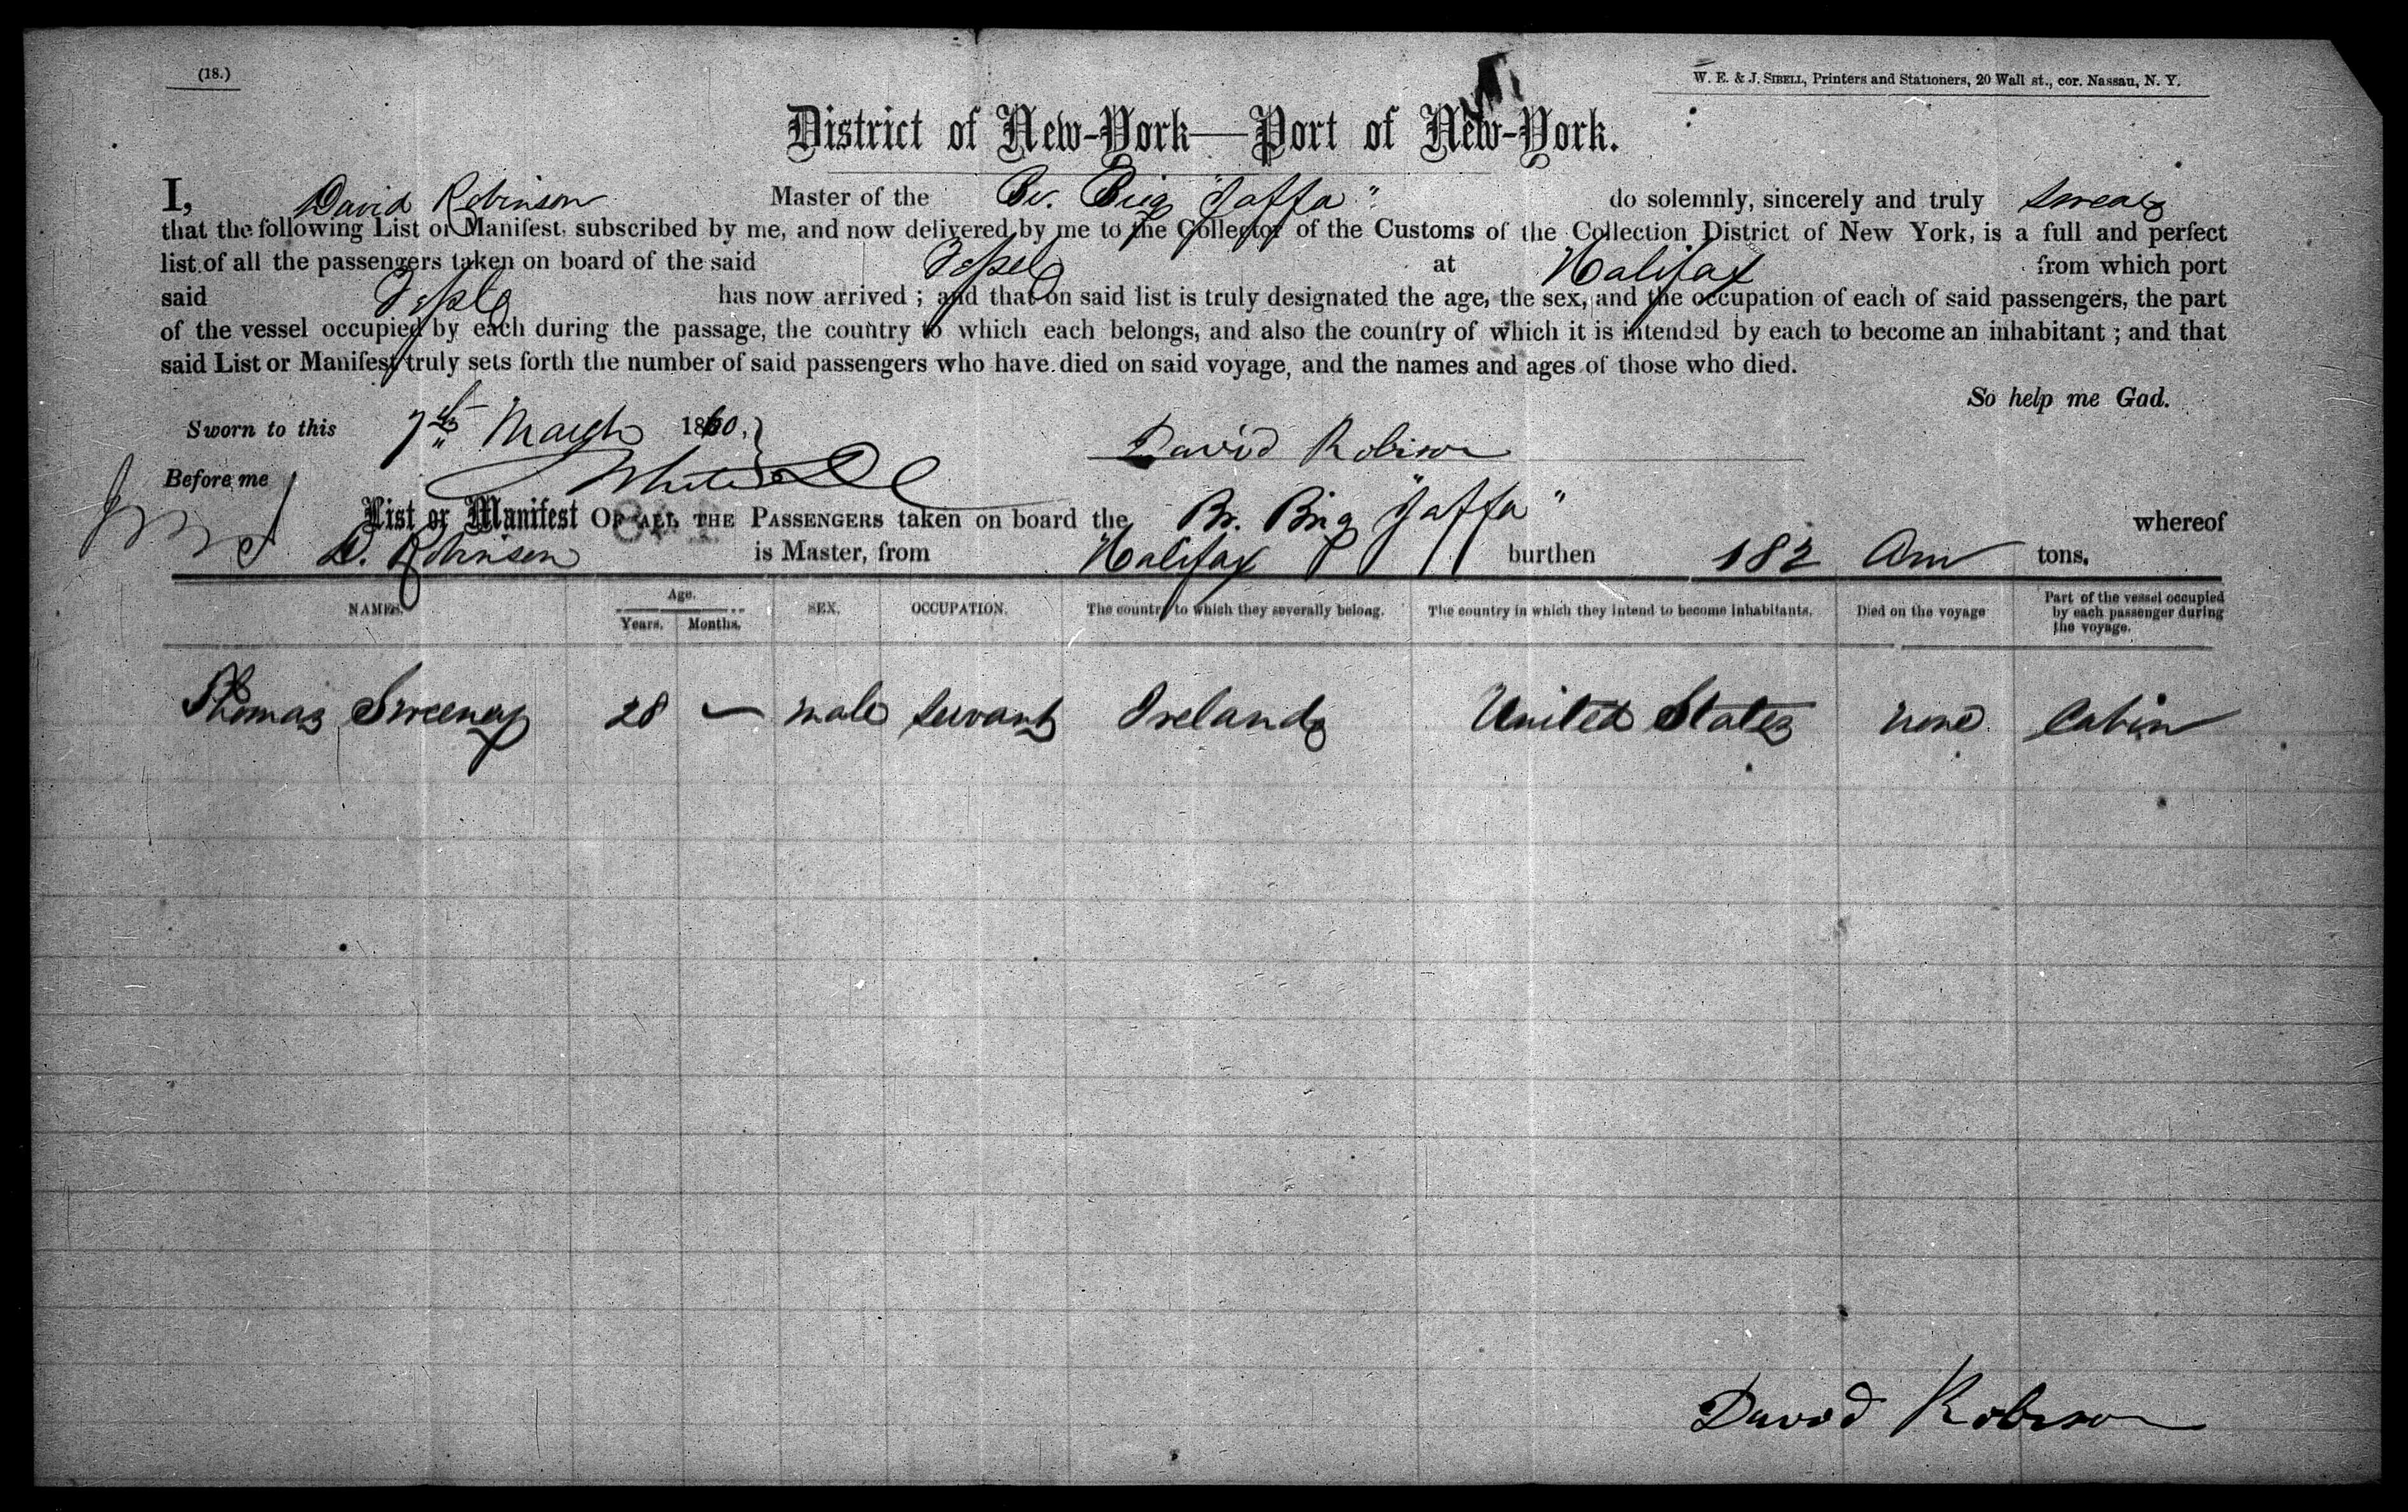 (18.)
W. E. & J. SIBELL, Printers and Stationers, 20 Wall st., cor. Nassau, N. Y.
District of New-York—Port of New-York.
I, David Robinson Master of the Br. Brig "Jaffa" do solemnly, sincerely and truly swear
that the following List or Manifest, subscribed by me, and now delivered by me to the Collector of the Customs of the Collection District of New York, is a full and perfect
list of all the passengers taken on board of the said Vessel at Halifax from which port
said Vessel has now arrived ; and that on said list is truly designated the age, the sex, and the occupation of each of said passengers, the part
of the vessel occupied by each during the passage, the country to which each belongs, and also the country of which it is intended by each to become an inhabitant ; and that
said List or Manifest truly sets forth the number of said passengers who have died on said voyage, and the names and ages of those who died.
So help me Gad.
Sworn to this 7th March 1860,
David Robison
Before me
List or Manifest OF ALL THE PASSENGERS taken on board the Br. Brig "Jaffa" whereof
D. Robinson is Master, from Halifax burthen 182 tons.
NAMES. Age. Years. Months. SEX. OCCUPATION. The country to which they severally belong. The country in which they intend to become inhabitants. Died on the voyage Part of the vessel occupied by each passenger during the voyage.
Thomas Sweeney 28 — male servant Ireland United States none Cabin
David Robison